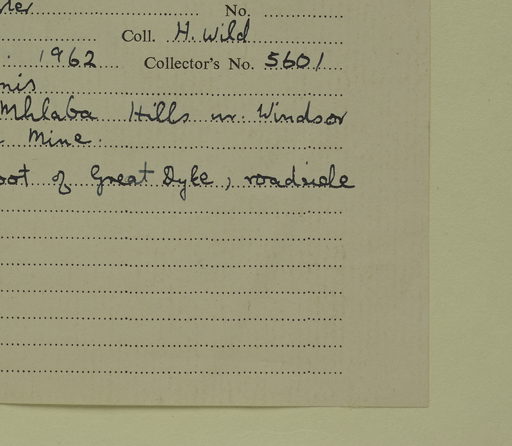 No.
Coll. H. Wild
1962 Collector's No. 5601
Mhlaba Hills nr. Windsor
Mine.
of Great Dyke, roadside